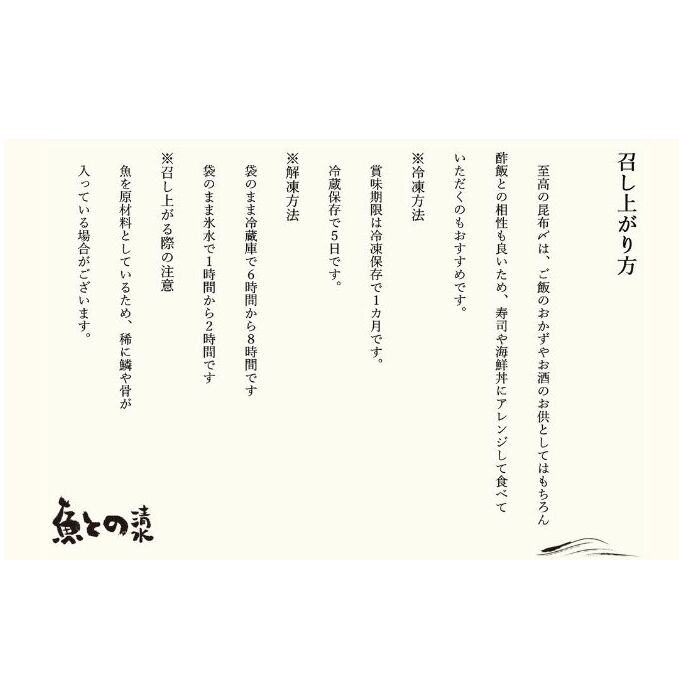 召し上がり方
至高の昆布〆は、ご飯のおかずやお酒のお供としてはもちろん
酢飯との相性も良いため、寿司や海鮮丼にアレンジして食べて
いただくのもおすすめです。
※冷凍方法
賞味期限は冷凍保存で1カ月です。
冷蔵保存で5日です。
※解凍方法
袋のまま冷蔵庫で6時間から8時間です
袋のまま氷水で1時間から2時間です
※召し上がる際の注意
魚を原材料としているため、稀に鱗や骨が
入っている場合がございます。
魚との清水